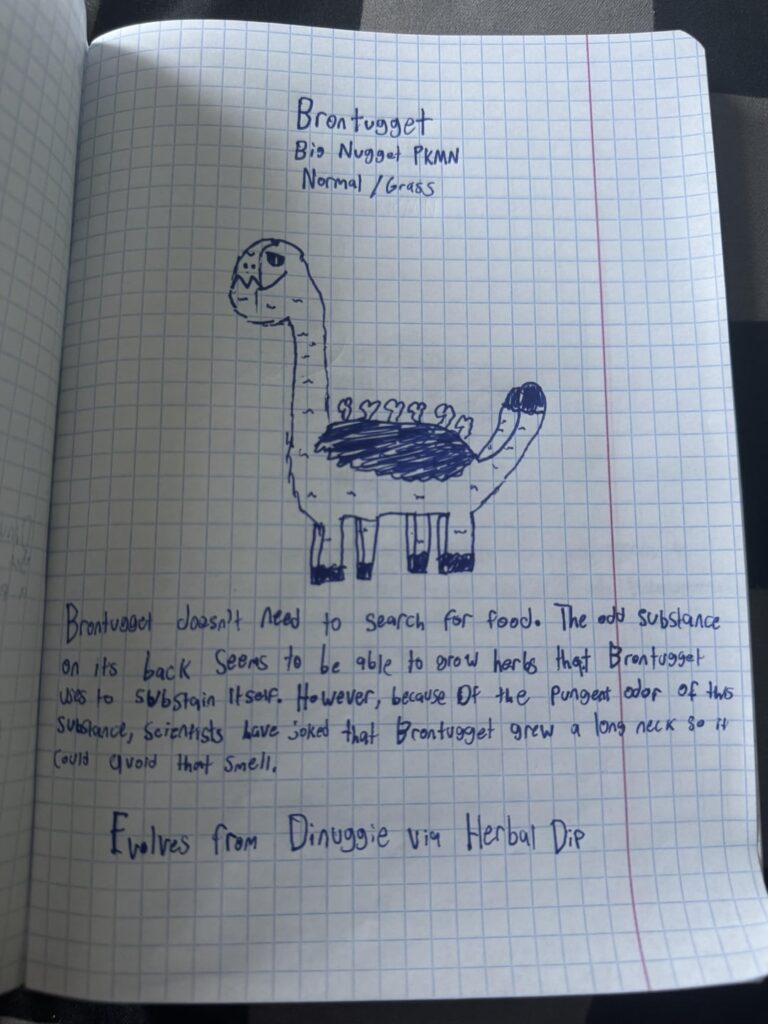 Brontugget
Big Nugget PKMN
Normal / Grass
Brontugget doesn't need to search for food. The odd substance
on its back seems to be able to grow herbs that Brontugget
uses to substain itself. However, because of the pungent odor of this
substance, scientists have joked that Brontugget grew a long neck so it
could avoid that smell.
Evolves from Dinuggie via Herbal Dip